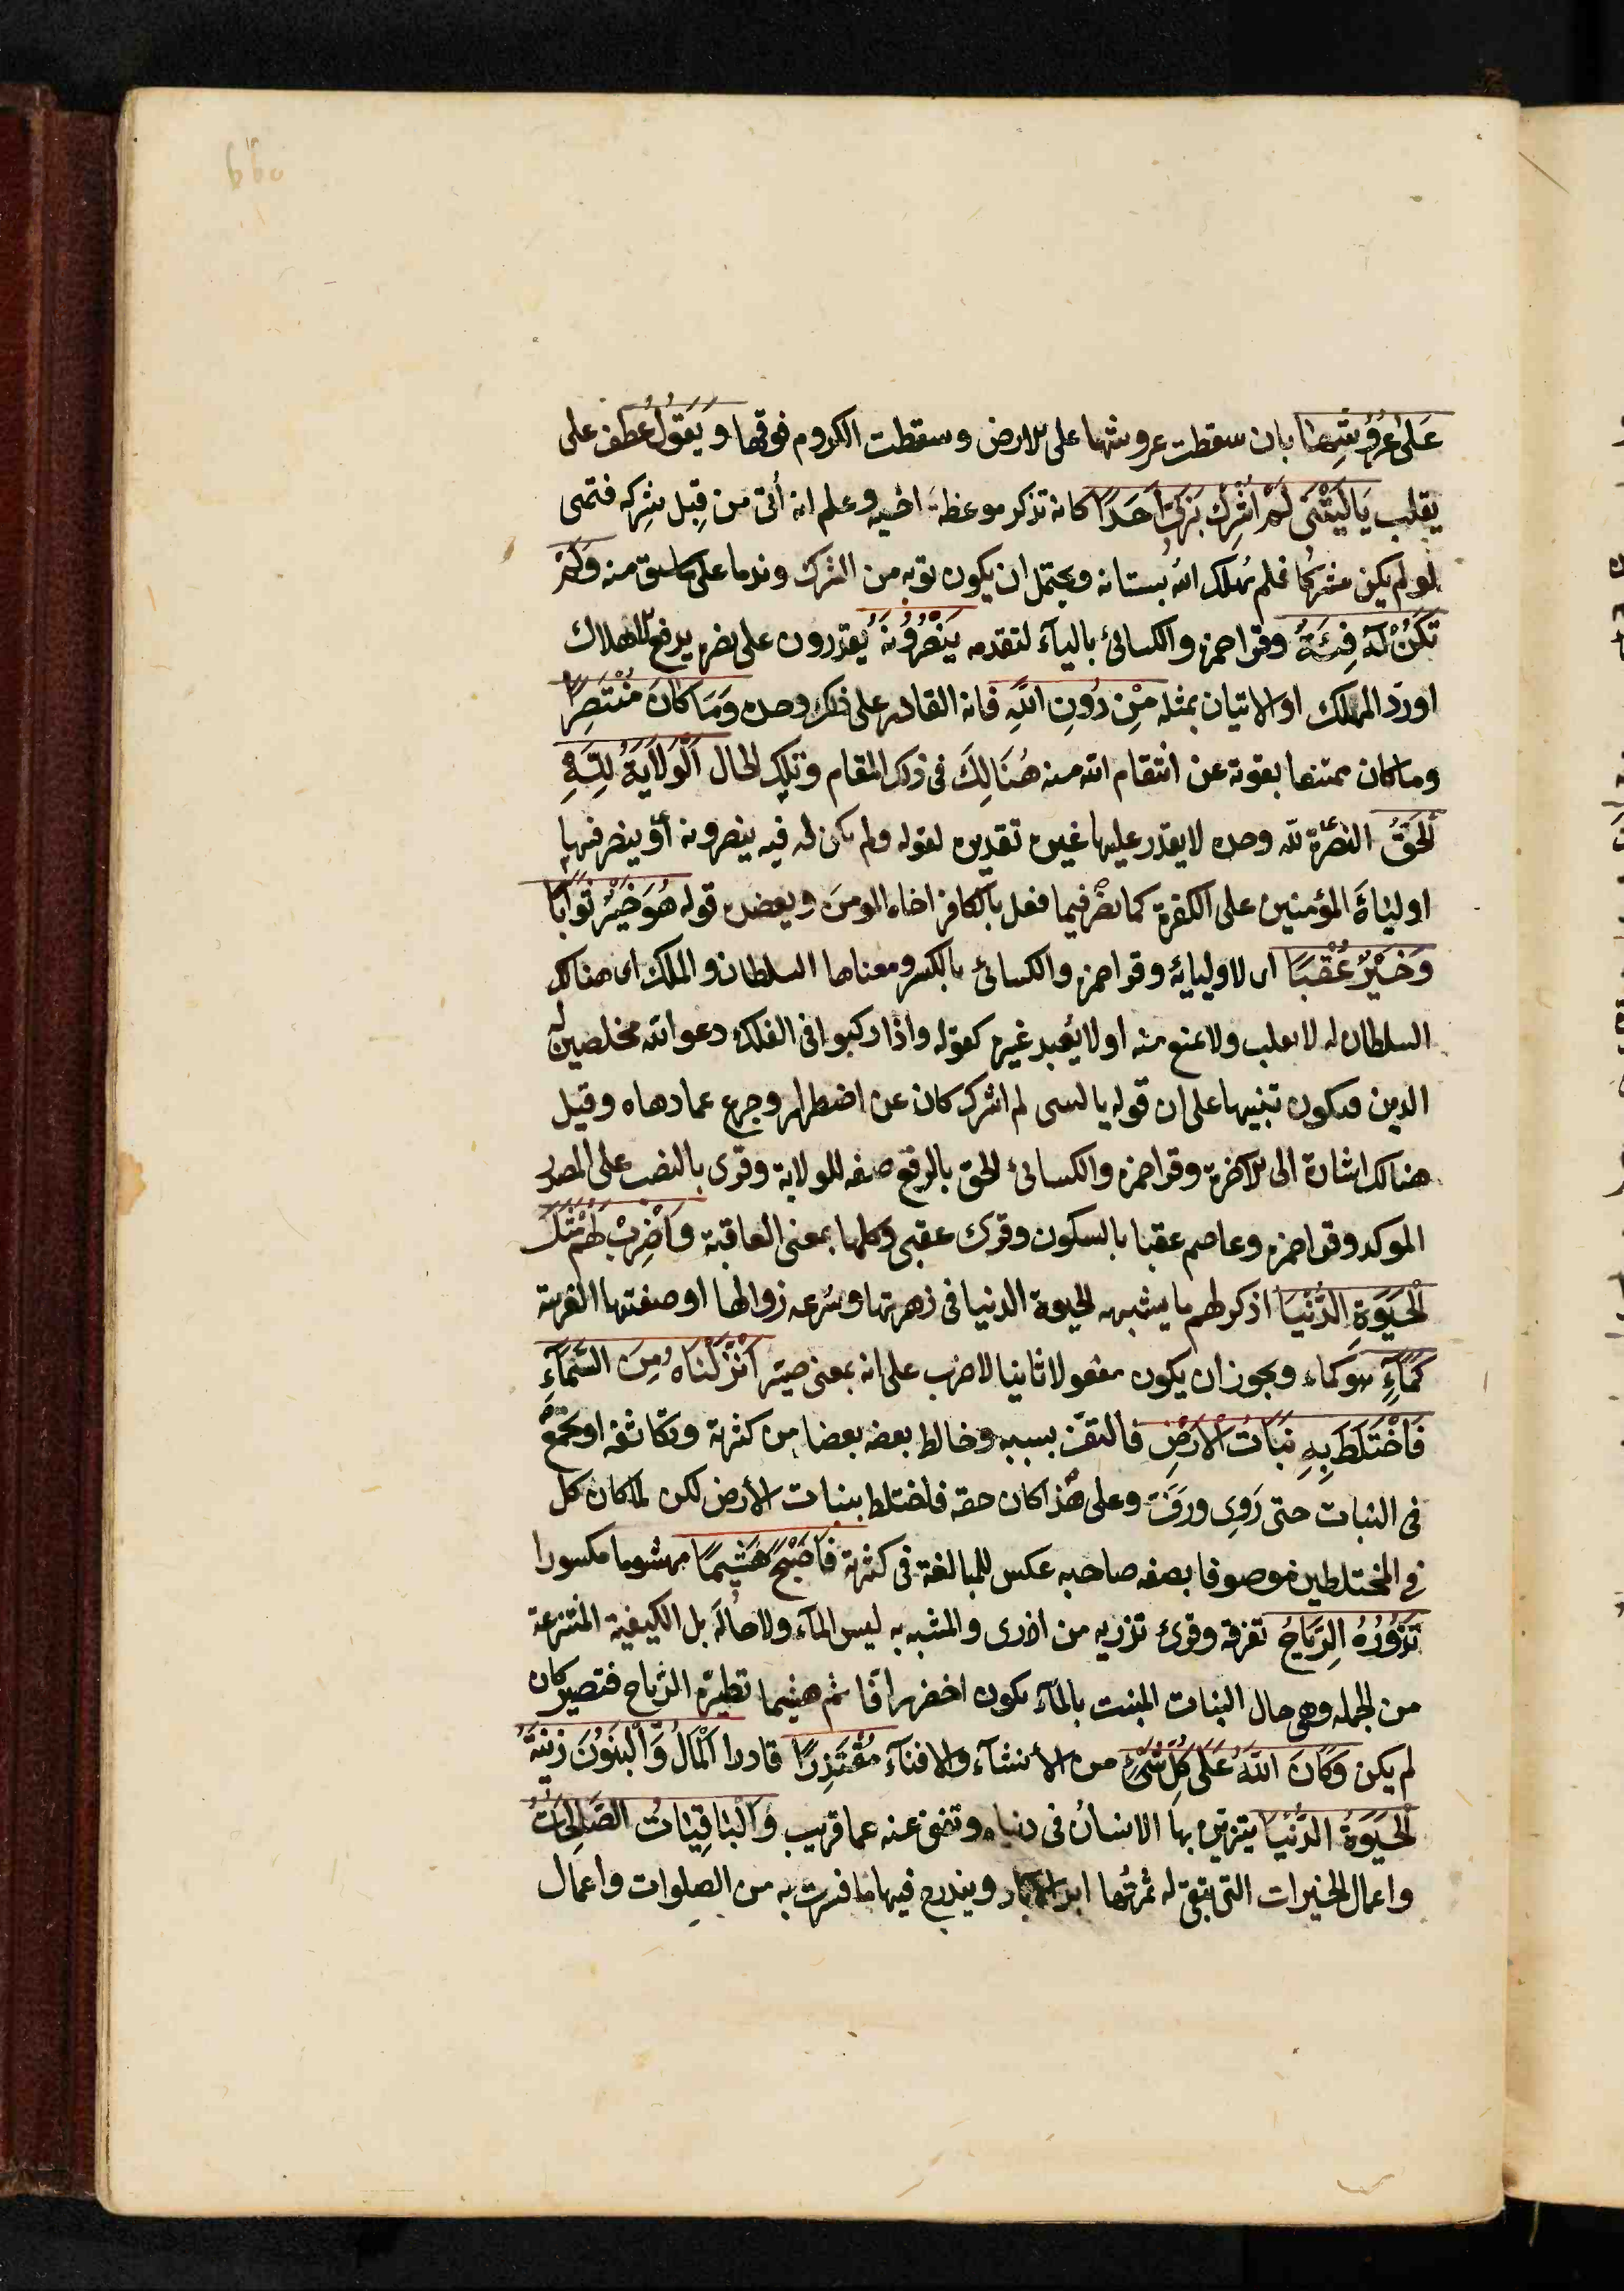 عَلَى عُرُوشِهَا بان سقطت عروشها على الارض وسقطت الكروم فوقها وَيَقُولُ عطف على
يقلب يَا لَيْتَنِى لَمْ اُشْرِكْ بِرَبِّى اَحَدًا كانه تذكر موعظة اخيه وعلم انه أتى من قِبل شِركه فتمنى
لو لم يكن مشركا فلم يهلك الله بُستانه ويحتمل ان يكون توبه من الشرك وندما على ما سبق منه وَلَمْ
تَكُنْ لَهُ فِئَةٌ وقرا حمزه والكسائى بالياء لتقدمه يَنْصُرُونَهُ يقدرون على نصره بدفع الاهلاك
او رد المهلك او الاتيان بمثله مِنْ دُونِ اللّٰهِ فانه القادر على ذلك وحده وَمَا كَانَ مُنْتَصِرًا
وما كان ممتنعا بقوته عن انتقام الله منه هُنَالِكَ فى ذلك المقام وتلك الحال اَلْوَلَايَةُ لِلّٰهِ
الْحَقِّ النصرة لله وحده لا يقدر عليها غيره تقديره لقوله ولم تكن له فيه ينصرونه أو ينصر فيها
اولياءَه المؤمنين على الكفرة كما نصر فيما فعل بالكافر اخاه المومن ويعضده قوله هُوَ خَيْرٌ ثَوَابًا
وَخَيْرٌ عُقْبًا اى لاوليايه وقرا حمزه والكسائى بالكسر ومعناها السلطان والملك اى هنالك
السلطان له لا يغلب ولا يمنع منه او لا يُعبد غيره كقوله واذا ركبوا فى الفلك دعوا الله مخلصين له
الدين فيكون تنبيها على ان قوله يا ليتنى لم اشرك كان عن اضطرار وجزع عما دهاه وقيل
هنالك اشارة الى الاخرة وقرا حمزه والكسائى الحق بالرفع صفه للولاية وقرى بالنصب على المصدر
الموكد وقرا حمزه وعاصم عقبا بالسكون وقرى عقبى وكلها بمعنى العاقبة وَاضْرِبْ لَهُمْ مَثَلَ
الْحَيٰوةِ الدُّنْيَا اذكر لهم ما يشبهه الحيوة الدنيا فى زهرتها وسُرعه زوالها او صفتها الغريبة
كَمَاءٍ هو كماء ويجوز ان يكون مفعولا ثانيا لاضرب على انه بمعنى صير اَنْزَلْنَاهُ مِنَ السَّمَاءِ
فَاخْتَلَطَ بِهِ نَبَاتُ الْاَرْضِ فالتفّ بسببه وخالط بعضه بعضا من كثرته وتكاثفه او نجع
فى النبات حتى رَوِى ورَفَّ وعلى هذا كان حقه فاختلط بنبات الأرض لكن لما كان كل
فى المختلطين موصوفا بصفه صاحبه عكس للمبالغة فى كثرته فَاَصْبَحَ هَشِيمًا مهشوما مكسورا
تَذْرُوهُ الرِّيَاحُ تفرقه وقرئ تذريه من اذرى والمشبه به ليس الماء ولا حاله بل الكيفية المنتزعة
من الجمله وهى حال النبات المنبت بالماء يكون اخضر رافّا ثم هشيما تطيره الرياح فتصير كان
لم يكن وَكَانَ اللّٰهُ عَلَى كُلِّ شَىْءٍ من الأنشاء والافناء مُقْتَدِرًا قادرا اَلْمَالُ وَالْبَنُونَ زِينَةُ
الْحَيٰوةِ الدُّنْيَا يتزين بها الانسان فى دنياه وتفنى عنه عما قريب وَالْبَاقِيَاتُ الصَّالِحَاتُ
واعمال الخيرات التى تبقى له ثمرتُها ابد الآباد ويندرج فيها ما فسرت به من الصلوات واعمال